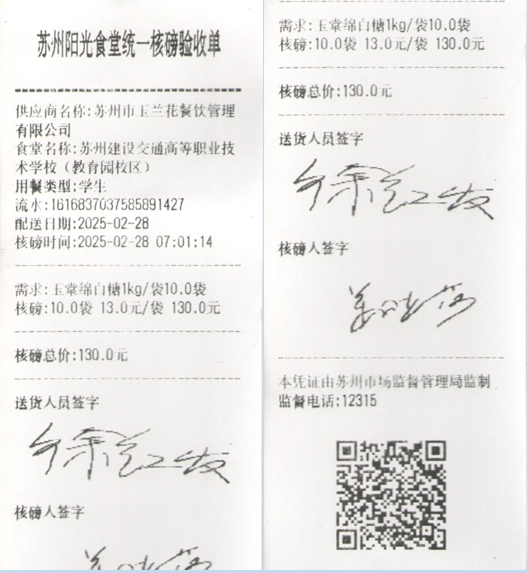 苏州阳光食堂统一核磅验收单
供应商名称:苏州市玉兰花餐饮管理
有限公司
食堂名称:苏州建设交通高等职业技
术学校（教育园校区）
用餐类型:学生
流水:1616837037585891427
配送日期:2025-02-28
核磅时间:2025-02-28 07:01:14
需求:玉棠绵白糖1kg/袋10.0袋
核磅:10.0袋 13.0元/袋 130.0元
核磅总价:130.0元
送货人员签字
核磅人签字
需求:玉棠绵白糖1kg/袋10.0袋
核磅:10.0袋 13.0元/袋 130.0元
核磅总价:130.0元
送货人员签字
核磅人签字
本凭证由苏州市场监督管理局监制
监督电话:12315